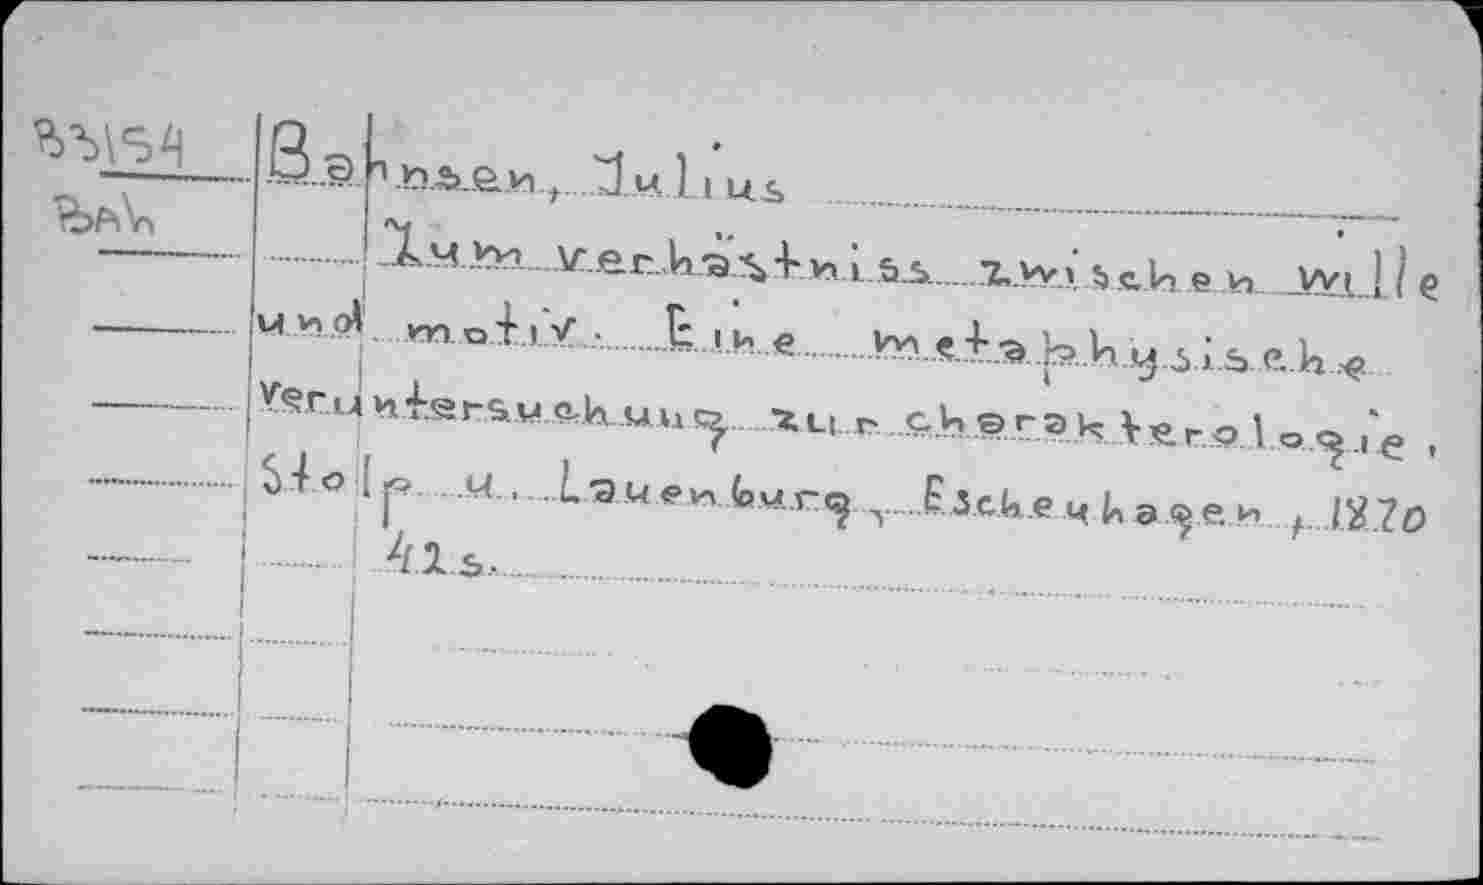 33154
BAh
Bahnsen, Julius
Zum verhästniss zwischen wille
und motiv. Eine metaphysische
veruntersuchung zur charakterologie,
Stolp u. Lauenburg, Eschenhagen, 1870
42s.